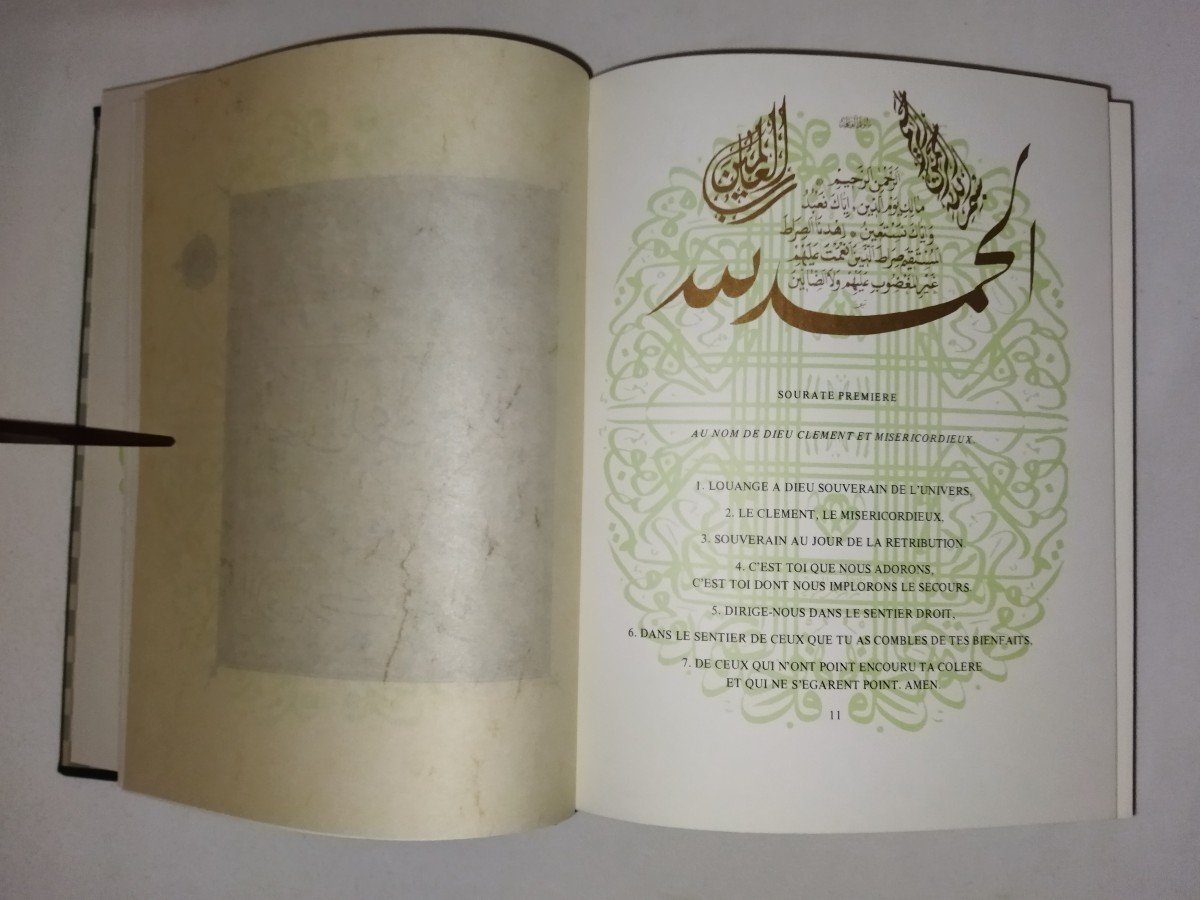 بسم الله الرحمن الرحيم
الحمد لله
العالمين
الرَّحْمٰنِ الرَّحِيمِ
مَالِكِ يَوْمِ الدِّينِ ، إِيَّاكَ نَعْبُدُ
وَإِيَّاكَ نَسْتَعِينُ ، اِهْدِنَا الصِّرَطَ
الْمُسْتَقِيمَ صِرَطَ الَّذِينَ أَنْعَمْتَ عَلَيْهِمْ
غَيْرِ الْمَغْضُوبِ عَلَيْهِمْ وَلَا الضَّالِّينَ
SOURATE PREMIERE
AU NOM DE DIEU CLEMENT ET MISERICORDIEUX.
1. LOUANGE A DIEU SOUVERAIN DE L'UNIVERS,
2. LE CLEMENT, LE MISERICORDIEUX,
3. SOUVERAIN AU JOUR DE LA RETRIBUTION.
4. C'EST TOI QUE NOUS ADORONS,
C'EST TOI DONT NOUS IMPLORONS LE SECOURS.
5. DIRIGE-NOUS DANS LE SENTIER DROIT,
6. DANS LE SENTIER DE CEUX QUE TU AS COMBLES DE TES BIENFAITS,
7. DE CEUX QUI N'ONT POINT ENCOURU TA COLERE
ET QUI NE S'EGARENT POINT. AMEN.
11